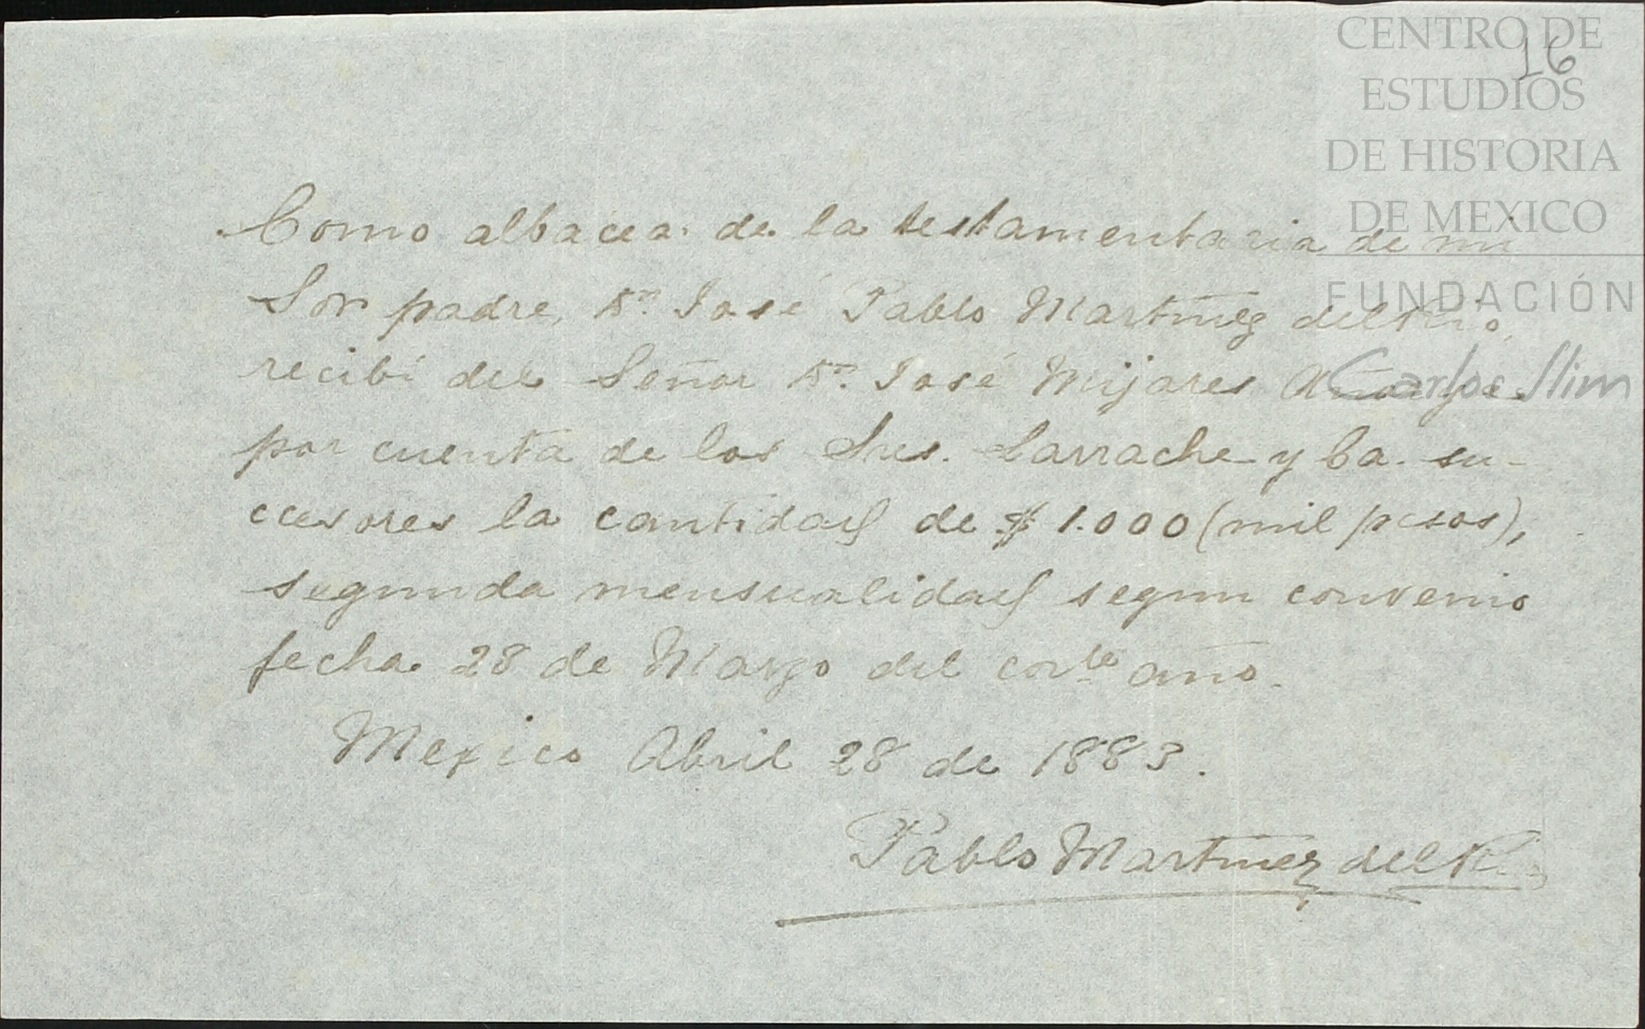 CENTRO DE
ESTUDIOS
DE HISTORIA
DE MEXICO
FUNDACIÓN
Carlos Slim
16
Como albacea de la testamentaria de mi
Sor padre, Dn. José Pablo Martinez del Rio,
recibí del Señor Dn. José Mijares
por cuenta de los Sres. Larrache y Ca. su-
ccesores la cantidad de $1.000 (mil pesos),
segunda mensualidad segun convenio
fecha 28 de Marzo del corte año.
Mexico Abril 28 de 1883.
Pablo Martinez del Rio